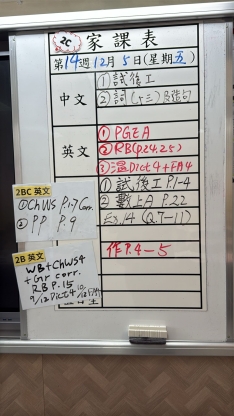 2C 家課表
第14週12月5日(星期五)
中文
①試後工
②詞(5-三)及造句
英文
①PGEA
②RB(P.24,25)
③溫Dict4+FA4
①試後工P.1-4
②數上A P.22
Ex.14 (Q.7-11)
作P.4-5
2BC 英文
①ChWs P.1-7 Corr.
②PP P.9
2B 英文
WB+ChWs4
+Gr corr.
RB P.15
9/12 Dict4